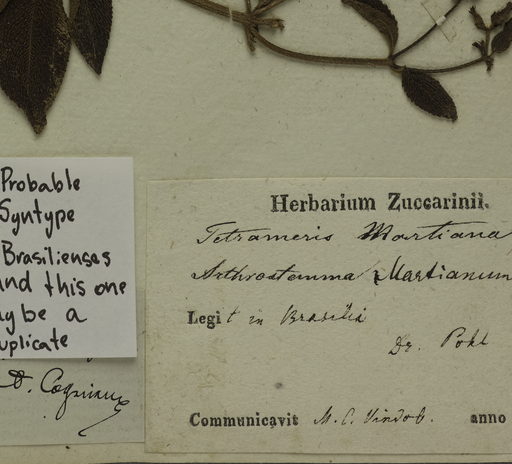 Probable
Syntype
Brasilienses
and this one
ay be a
uplicate
A. Cogniaux
Herbarium Zuccarinii.
Tetrameris Martiana
Arthrostemma Martianum
Legit in Brasilia
Dr. Pohl
Communicavit M. C. Vindob. anno